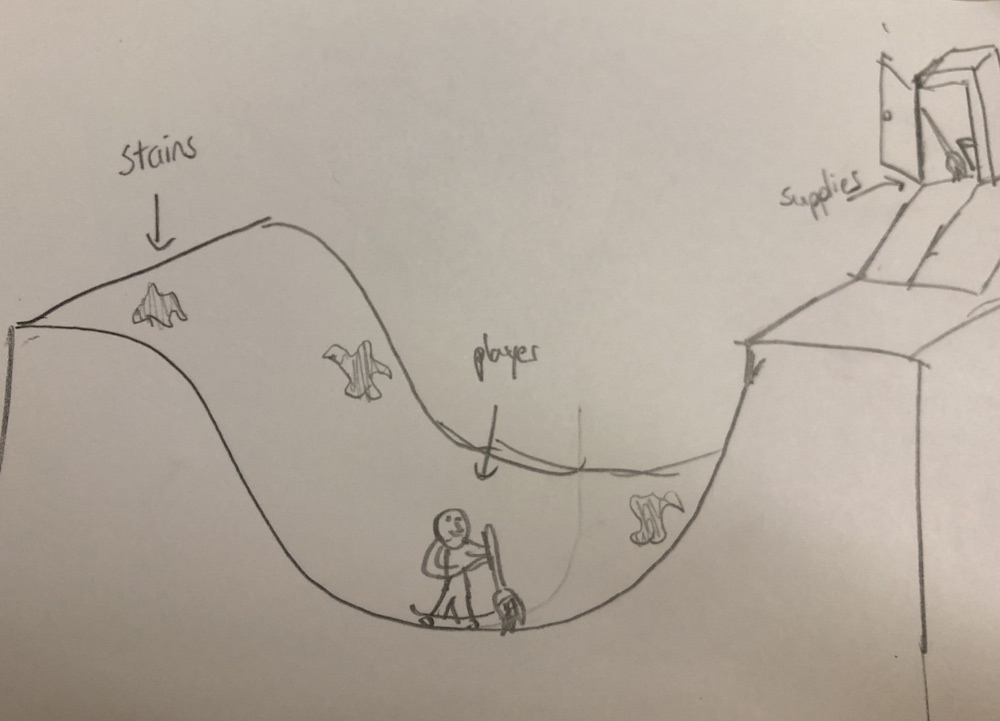 stains
supplies
player